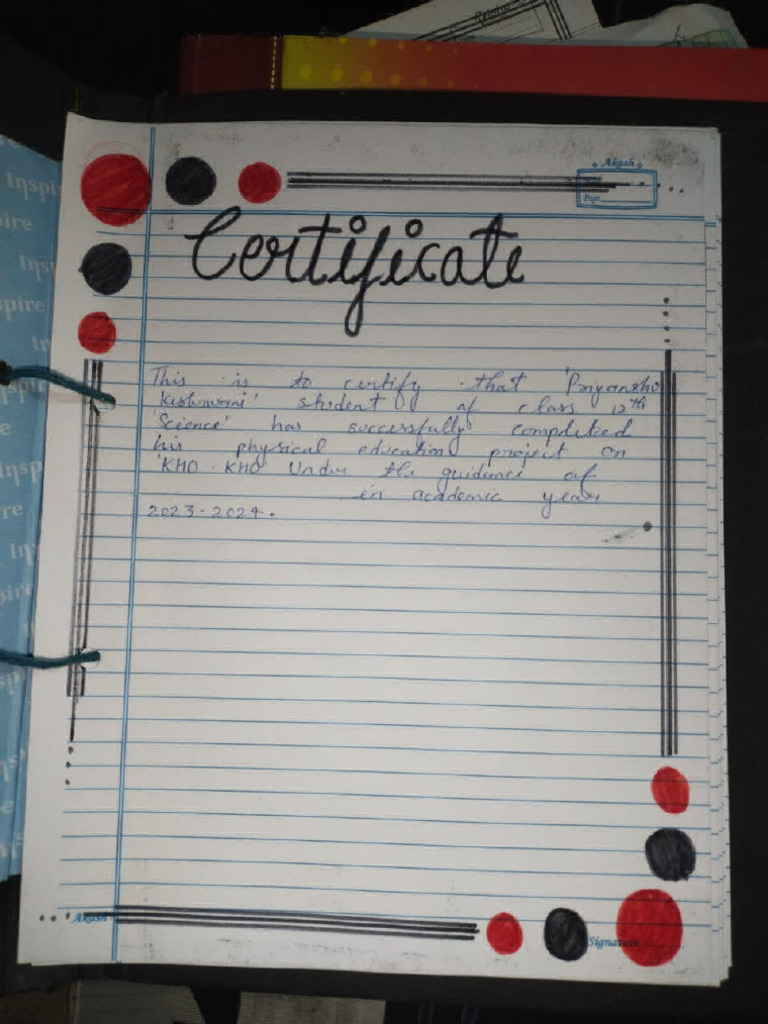 Akash
Page
Certificate
This is to certify that 'Priyanshu
Keshwani' student of class 12th
'Science' has successfully completed
his physical education project on
'KHO-KHO Under the guidance of
in academic year
2023-2024.
Akash
Signature
Inspire